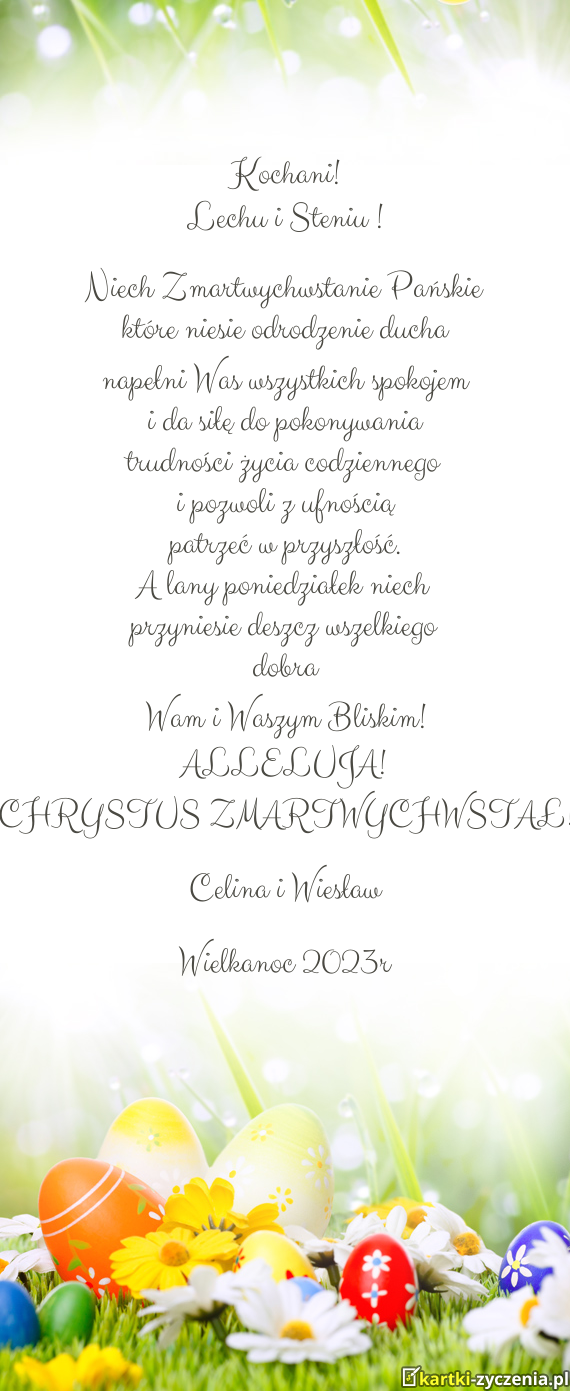 Kochani!
Lechu i Steniu !
Niech Zmartwychwstanie Pańskie
które niesie odrodzenie ducha
napełni Was wszystkich spokojem
i da siłę do pokonywania
trudności życia codziennego
i pozwoli z ufnością
patrzeć w przyszłość.
A lany poniedziałek niech
przyniesie deszcz wszelkiego
dobra
Wam i Waszym Bliskim!
ALLELUJA!
CHRYSTUS ZMARTWYCHWSTAŁ!
Celina i Wiesław
Wielkanoc 2023r
kartki-zyczenia.pl